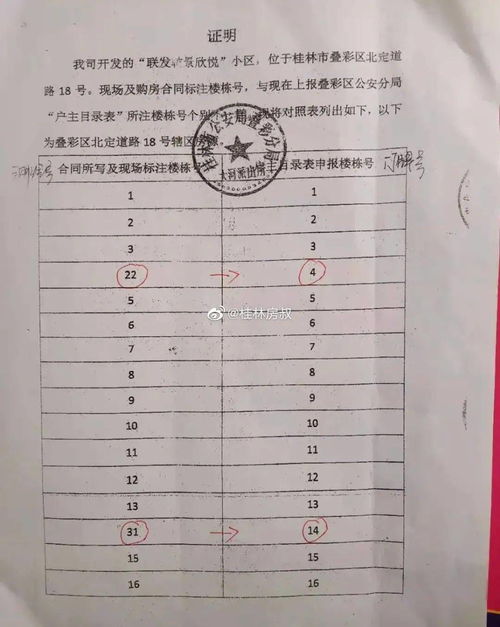 证明
我司开发的“联发 景欣悦”小区，位于桂林市叠彩区北定道
路18号。现场及购房合同标注楼栋号，与现在上报叠彩区公安分局
“户主目录表”所注楼栋号个别 现将对照表列出如下，以下
为叠彩区北定道路18号辖区
桂林市公安局叠彩分局
大河派出所
合同所写及现场标注楼栋号 主目录表申报楼栋号 门牌号
1 1
2 2
3 3
22 → 4
5 5
6 6
@桂林房叔
7 7
8 8
9 9
10 10
11 11
12 12
13 13
31 → 14
15 15
16 16